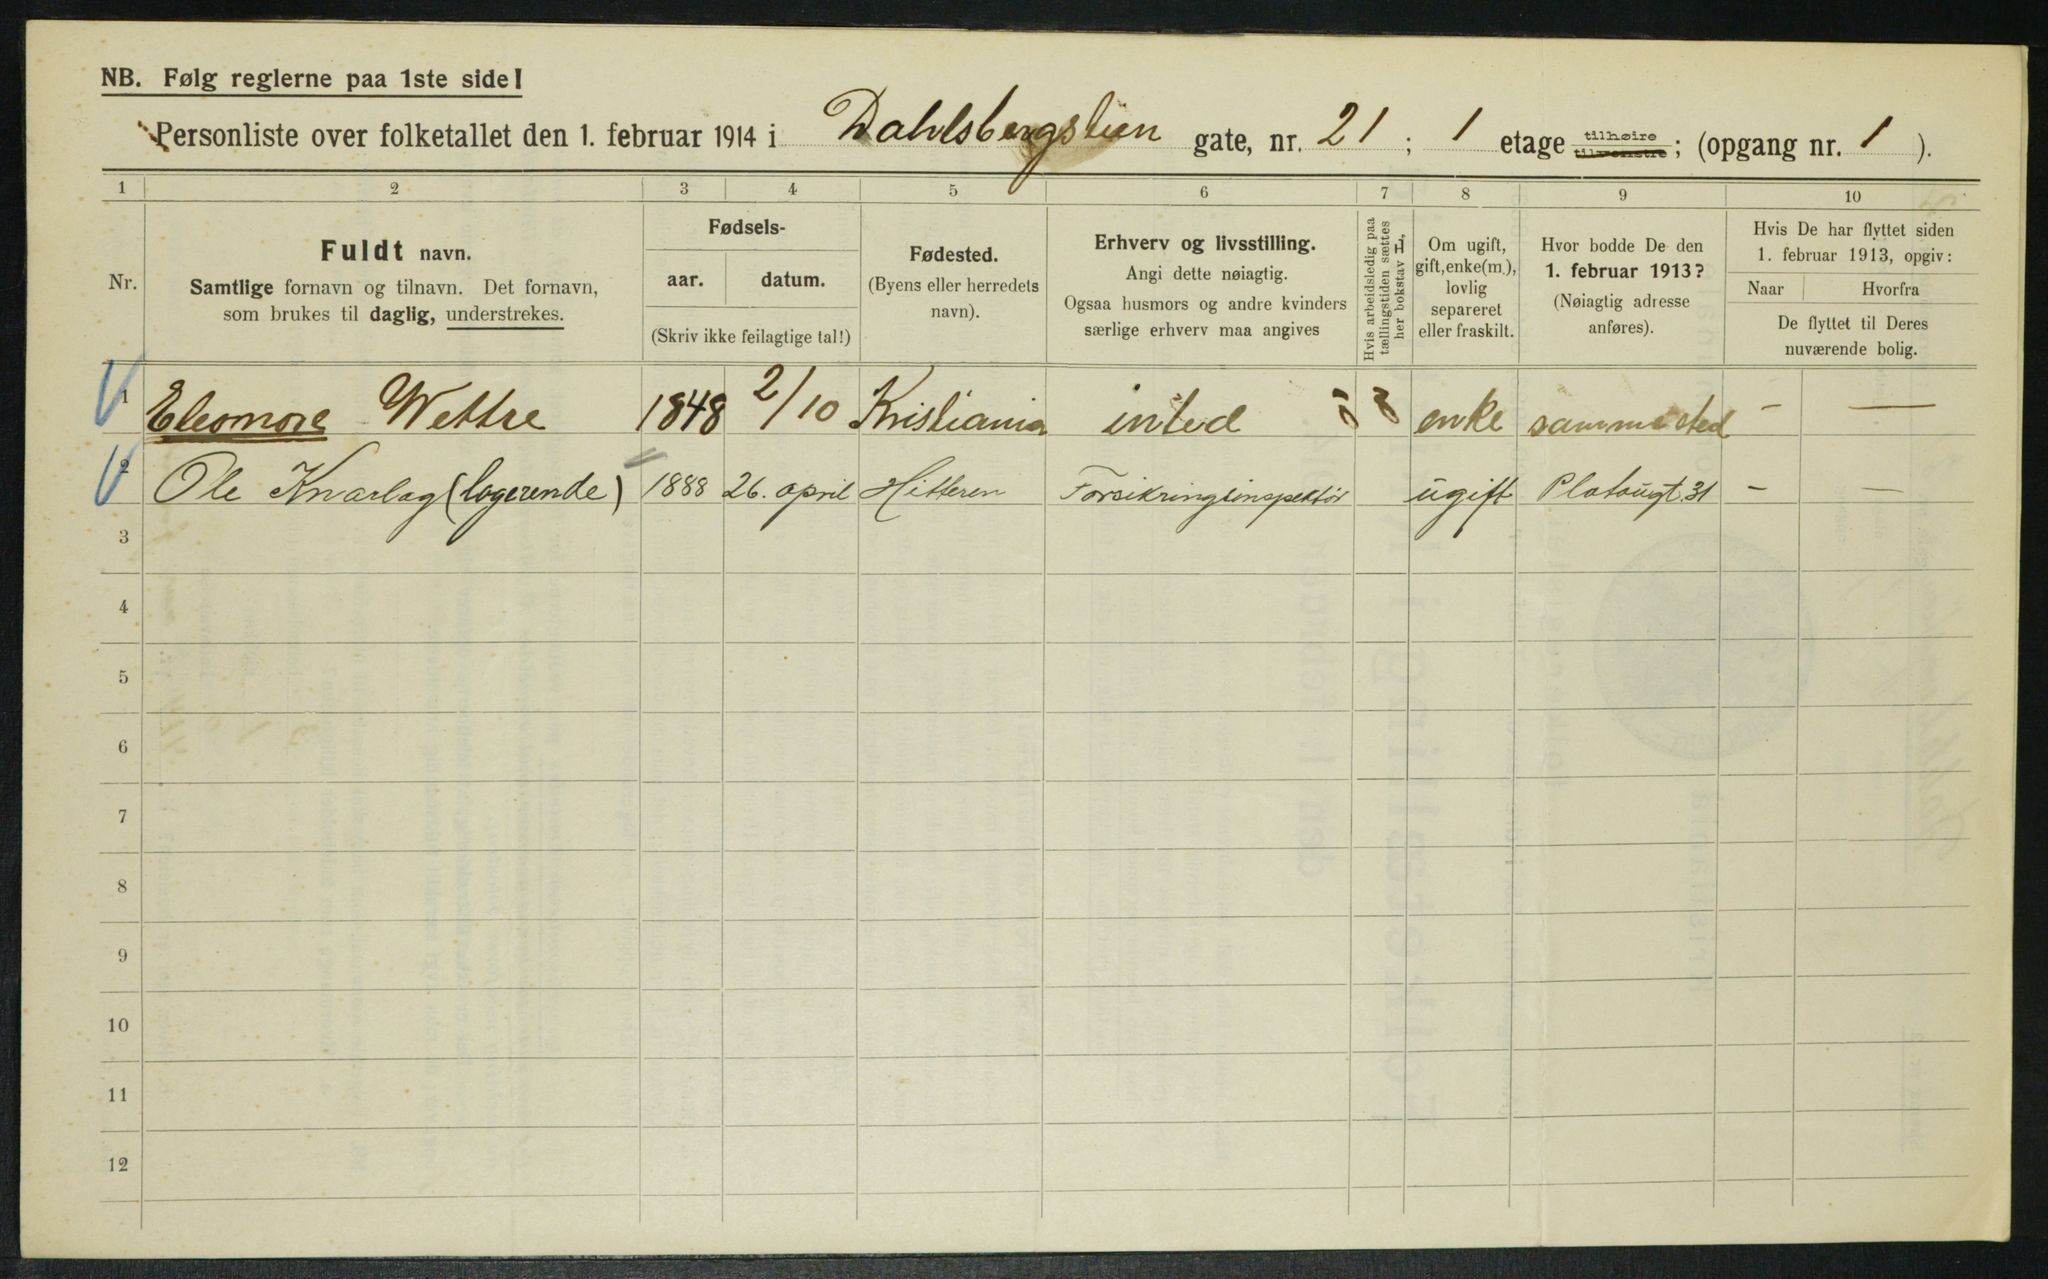 NB. Følg reglerne paa 1ste side!
Personliste over folketallet den 1. februar 1914 i Dahlsbergstien gate, nr. 21 ; 1 etage tilhøire tilvenstre ; (opgang nr. 1 ).
1 2 3 4 5 6 7 8 9 10
Nr.
Fuldt navn.
Samtlige fornavn og tilnavn. Det fornavn,
som brukes til daglig, understrekes.
Fødsels-
aar. datum.
(Skriv ikke feilagtige tal!)
Fødested.
(Byens eller herredets
navn).
Erhverv og livsstilling.
Angi dette nøiagtig.
Ogsaa husmors og andre kvinders
særlige erhverv maa angives
Hvis arbeidsledig paa
tællingstiden sættes
her bokstav L,
Om ugift,
gift, enke(m.),
lovlig
separeret
eller fraskilt.
Hvor bodde De den
1. februar 1913?
(Nøiagtig adresse
anføres).
Hvis De har flyttet siden
1. februar 1913, opgiv:
Naar Hvorfra
De flyttet til Deres
nuværende bolig.
1 Eleonore Wettre 1848 2/10 Kristiania inted enke sammested - —
2 Ole Knarlag (logerende) 1888 26. april Hitteren Forsikringsinspektør ugift Platougt. 31 - —
3
4
5
6
7
8
9
10
11
12